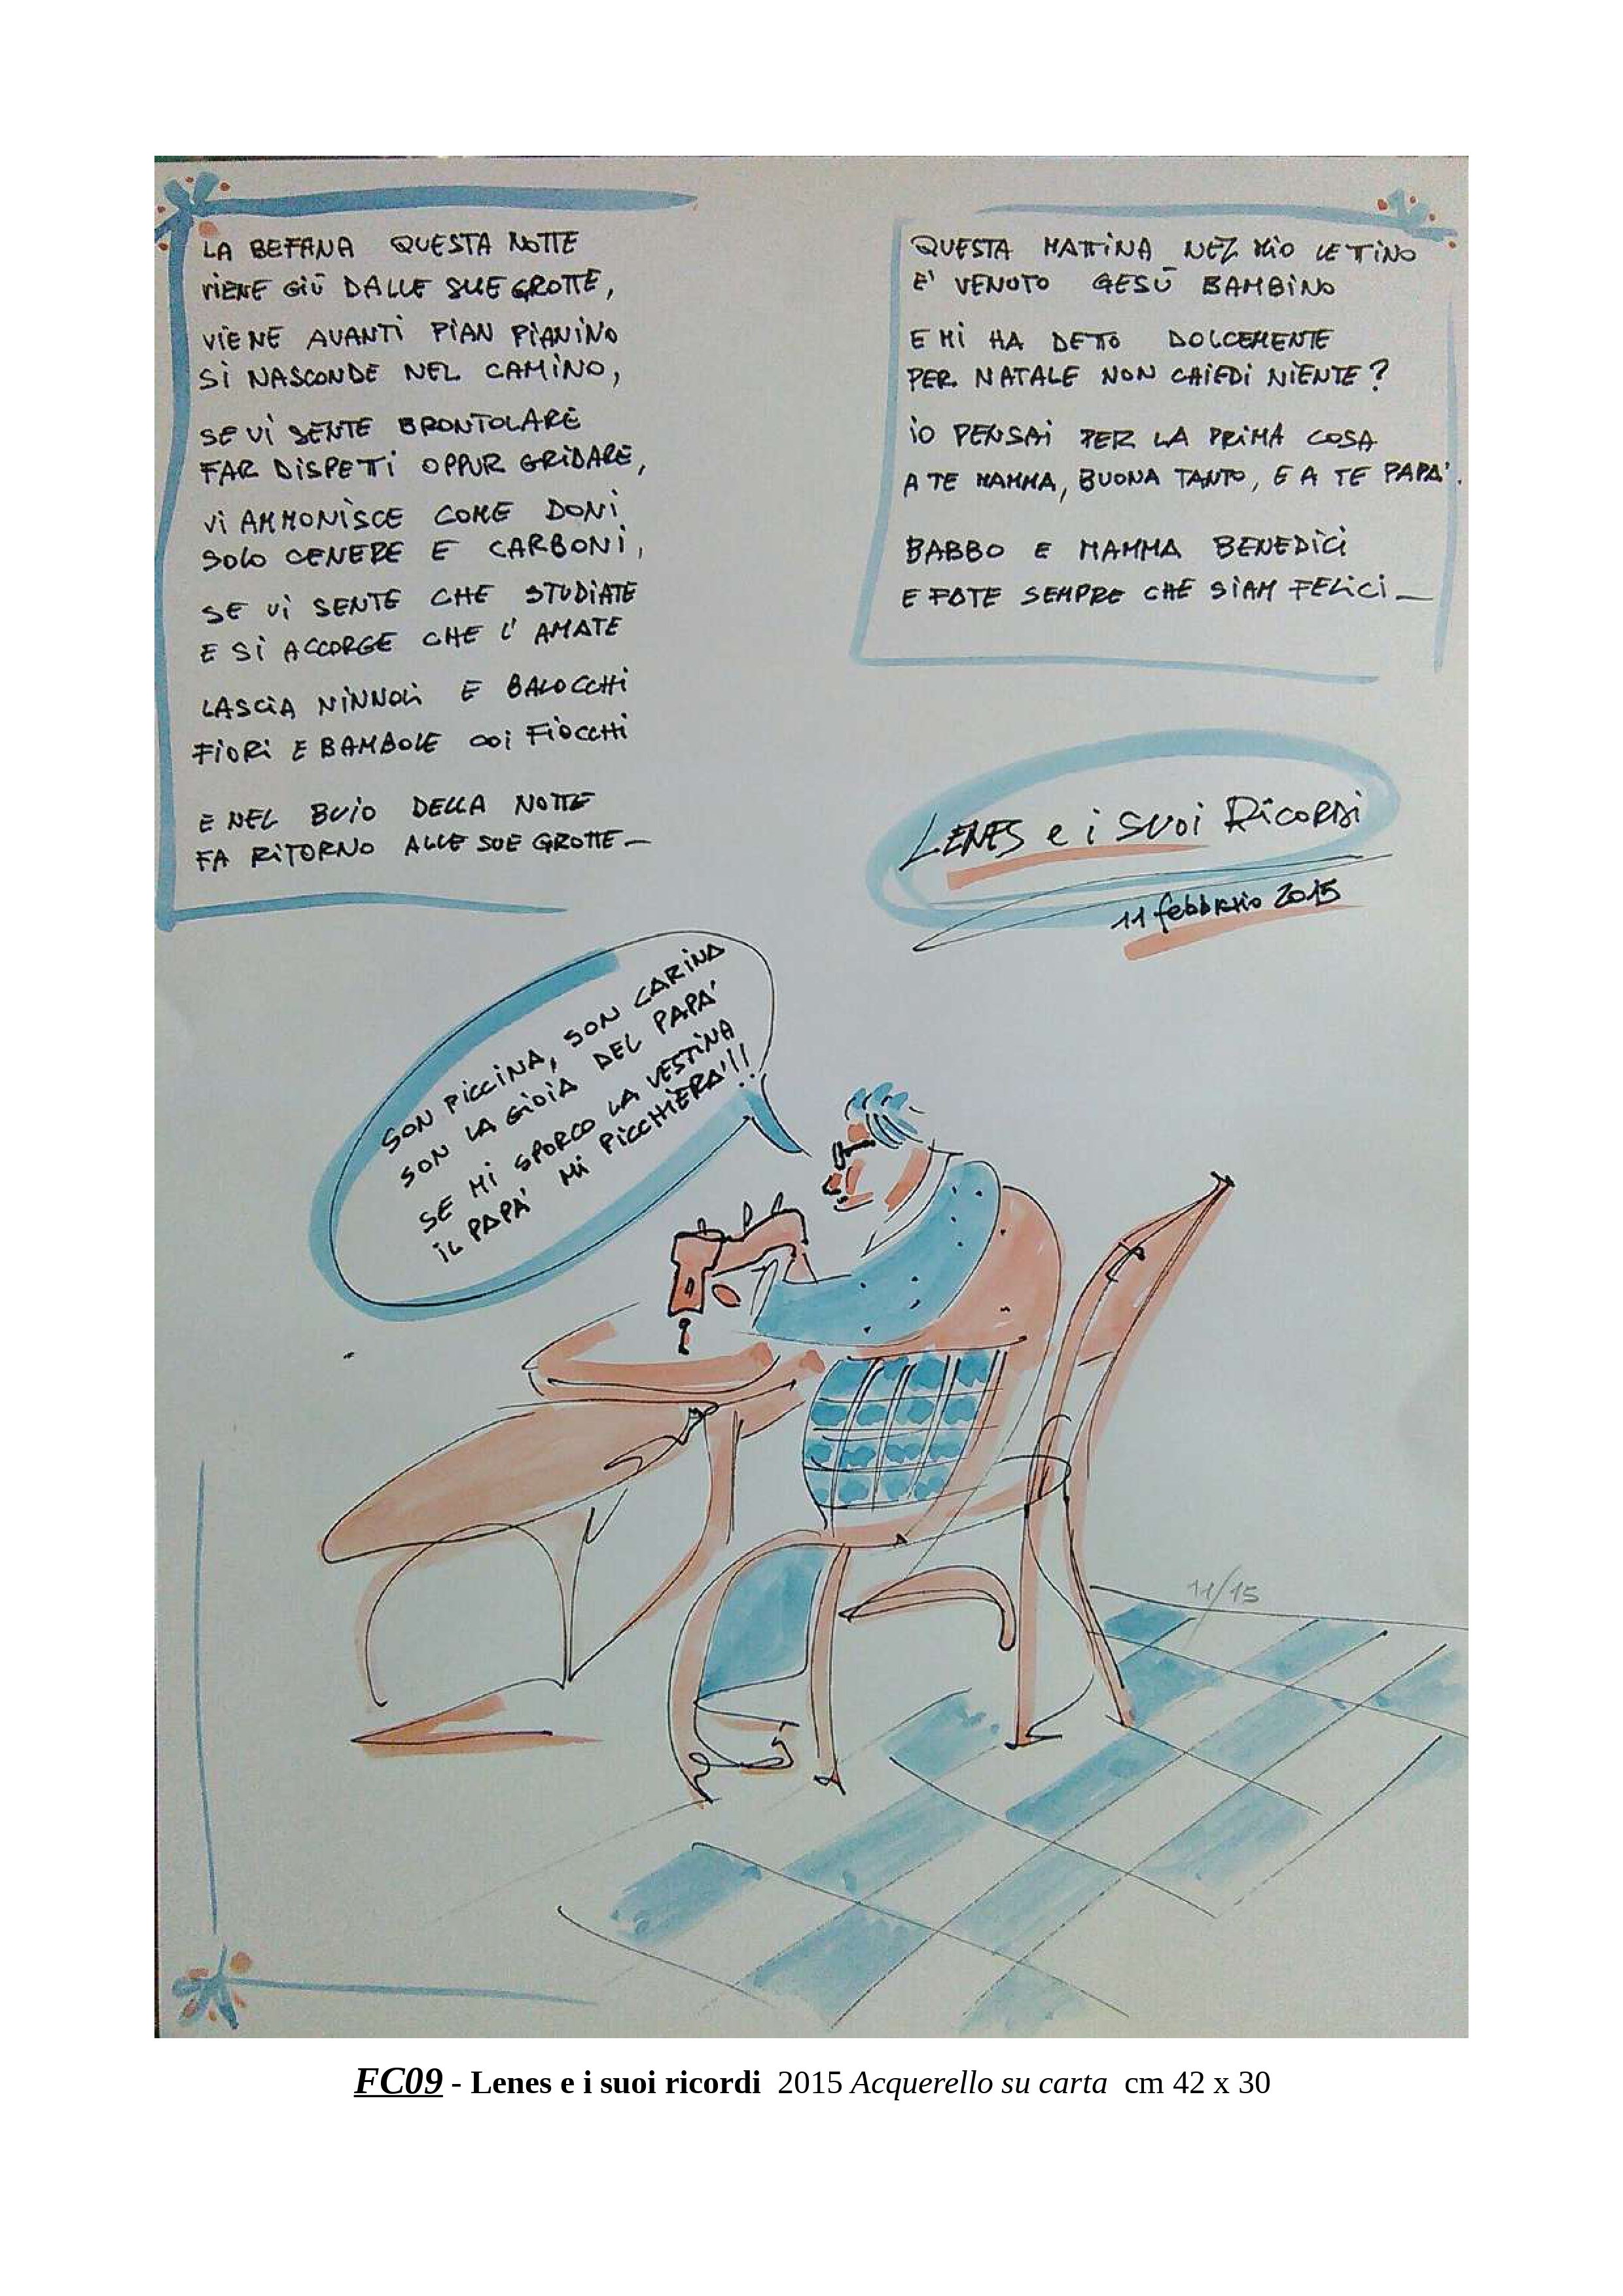 LA BEFANA QUESTA NOTTE
VIENE GIÙ DALLE SUE GROTTE,
VIENE AVANTI PIAN PIANINO
SI NASCONDE NEL CAMINO,
SE VI SENTE BRONTOLARE
FAR DISPETTI OPPUR GRIDARE,
VI AMMONISCE COME DONI
SOLO CENERE E CARBONI,
SE VI SENTE CHE STUDIATE
E SI ACCORGE CHE L'AMATE
LASCIA NINNOLI E BALOCCHI
FIORI E BAMBOLE COI FIOCCHI
E NEL BUIO DELLA NOTTE
FA RITORNO ALLE SUE GROTTE_
QUESTA MATTINA NEL MIO LETTINO
E' VENUTO GESÙ BAMBINO
E MI HA DETTO DOLCEMENTE
PER NATALE NON CHIEDI NIENTE?
IO PENSAI PER LA PRIMA COSA
A TE MAMMA, BUONA TANTO, E A TE PAPA'.
BABBO E MAMMA BENEDICI
E FATE SEMPRE CHE SIAM FELICI_
LENES e i SUOi RicORDi
11 febbraio 2015
SON PICCINA, SON CARINA
SON LA GIOIA DEL PAPA'
SE MI SPORCO LA VESTINA
IL PAPA' MI PICCHIERA'!!
11/15
FC09 - Lenes e i suoi ricordi 2015 Acquerello su carta cm 42 x 30